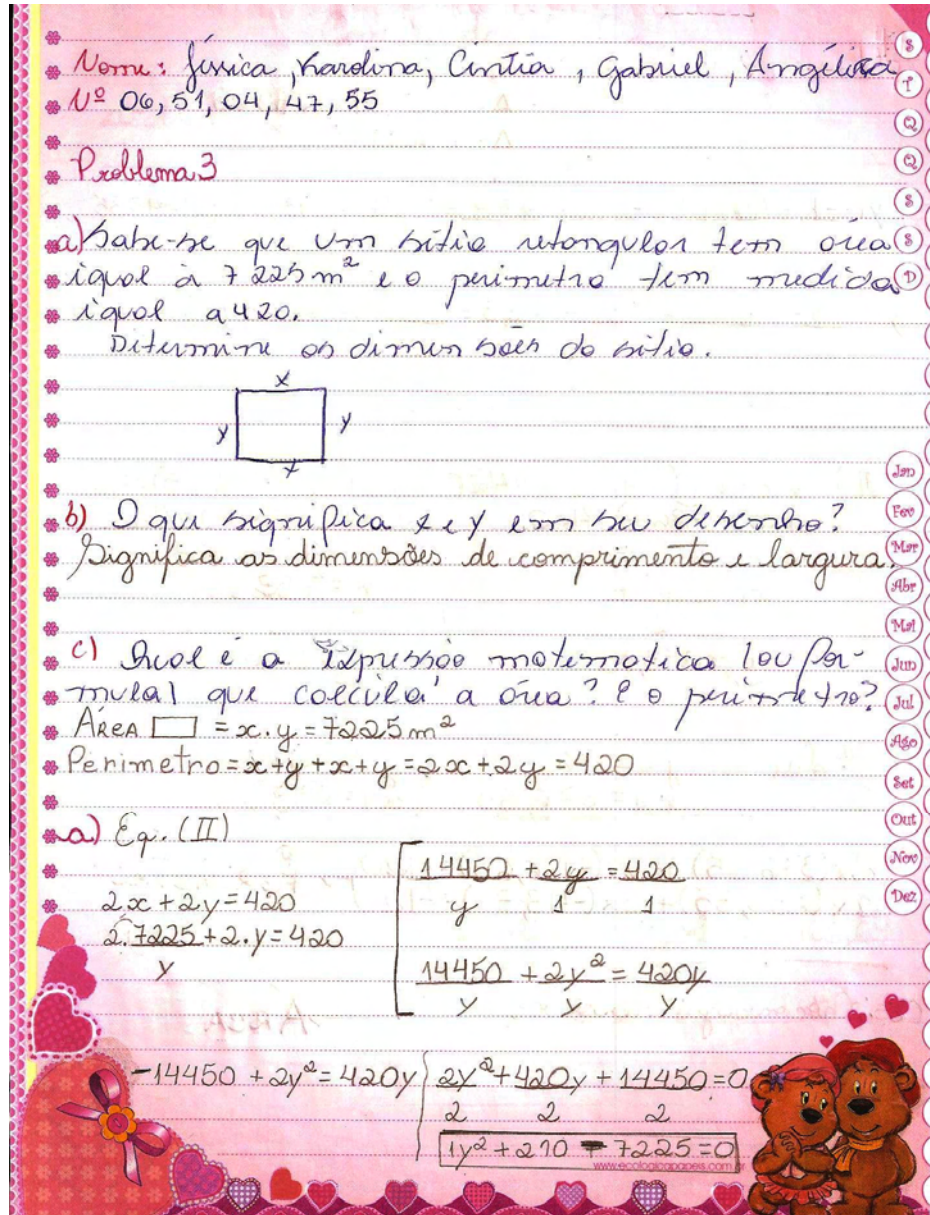 Nome: Jéssica, Karolina, Cintia, Gabriel, Angélica
Nº 06, 51, 04, 47, 55
Problema 3
a) Sabe-se que um sítio retangular tem área
igual à 7225 m² e o perimetro tem medida
igual a 420.
Determine as dimensões do sítio.
x
y y
x
b) O que significa x e y em seu desenho?
Significa as dimensões de comprimento e largura.
c) Qual é a expressão matematica (ou for-
mula) que calcula a área? E o perimetro?
ÁREA = x.y = 7225 m²
Perimetro = x+y+x+y = 2x+2y = 420
a) Eq. (II)
2x+2y=420
2.7225/y + 2.y = 420
14450/y + 2y/1 = 420/1
14450/y + 2y²/y = 420y/y
-14450 + 2y² = 420y
2y²/2 + 420y/2 + 14450/2 = 0
1y² + 210 - 7225 = 0
www.ecologicapapeis.com.br
S
T
Q
Q
S
S
D
Jan
Fev
Mar
Abr
Mai
Jun
Jul
Ago
Set
Out
Nov
Dez